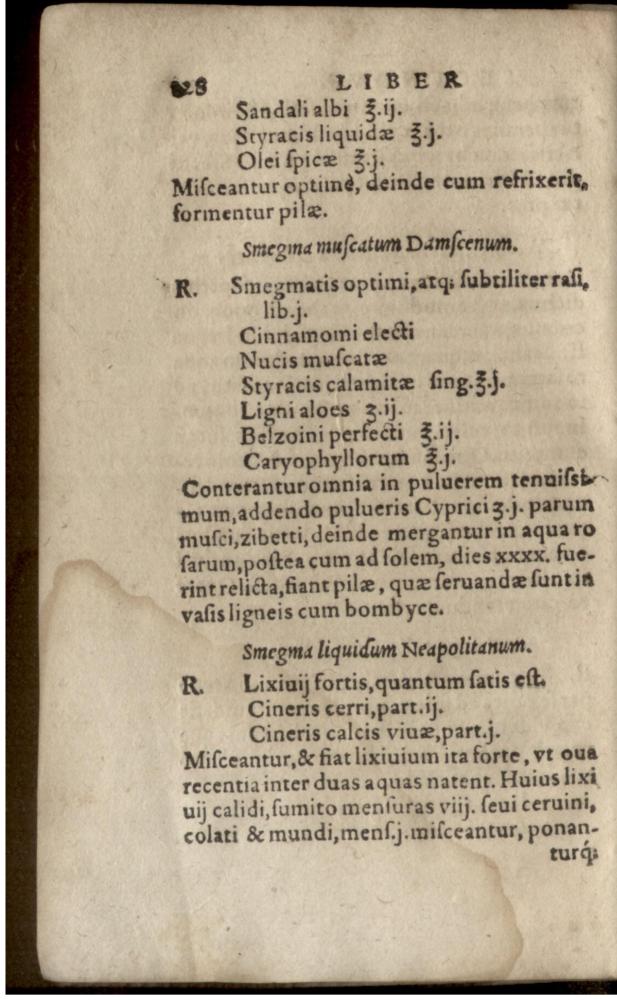 LIBER
Sandali albi ℥.ij.
Styracis liquidæ ℥.j.
Olei ſpicæ ℥.j.
Miſceantur optimè, deinde cum refrixerit,
formentur pilæ.
Smegma muſcatum Damſcenum.
R. Smegmatis optimi, atq; ſubtiliter raſi,
lib.j.
Cinnamomi electi
Nucis muſcatæ
Styracis calamitæ ſing.℥.j.
Ligni aloes ʒ.ij.
Belzoini perfecti ℥.ij.
Caryophyllorum ℥.j.
Conterantur omnia in puluerem tenuiſsi-
mum, addendo pulueris Cyprici ʒ.j. parum
muſci, zibetti, deinde mergantur in aqua ro
ſarum, poſtea cum ad ſolem, dies xxxx. fue-
rint relicta, fiant pilæ, quæ ſeruandæ ſunt in
vaſis ligneis cum bombyce.
Smegma liquidum Neapolitanum.
R. Lixiuij fortis, quantum ſatis eſt.
Cineris cerri, part.ij.
Cineris calcis viuæ, part.j.
Miſceantur, & fiat lixiuium ita forte, vt oua
recentia inter duas aquas natent. Huius lixi
uij calidi, ſumito menſuras viij. ſeui ceruini,
colati & mundi, menſ.j. miſceantur, ponan-
turq́;